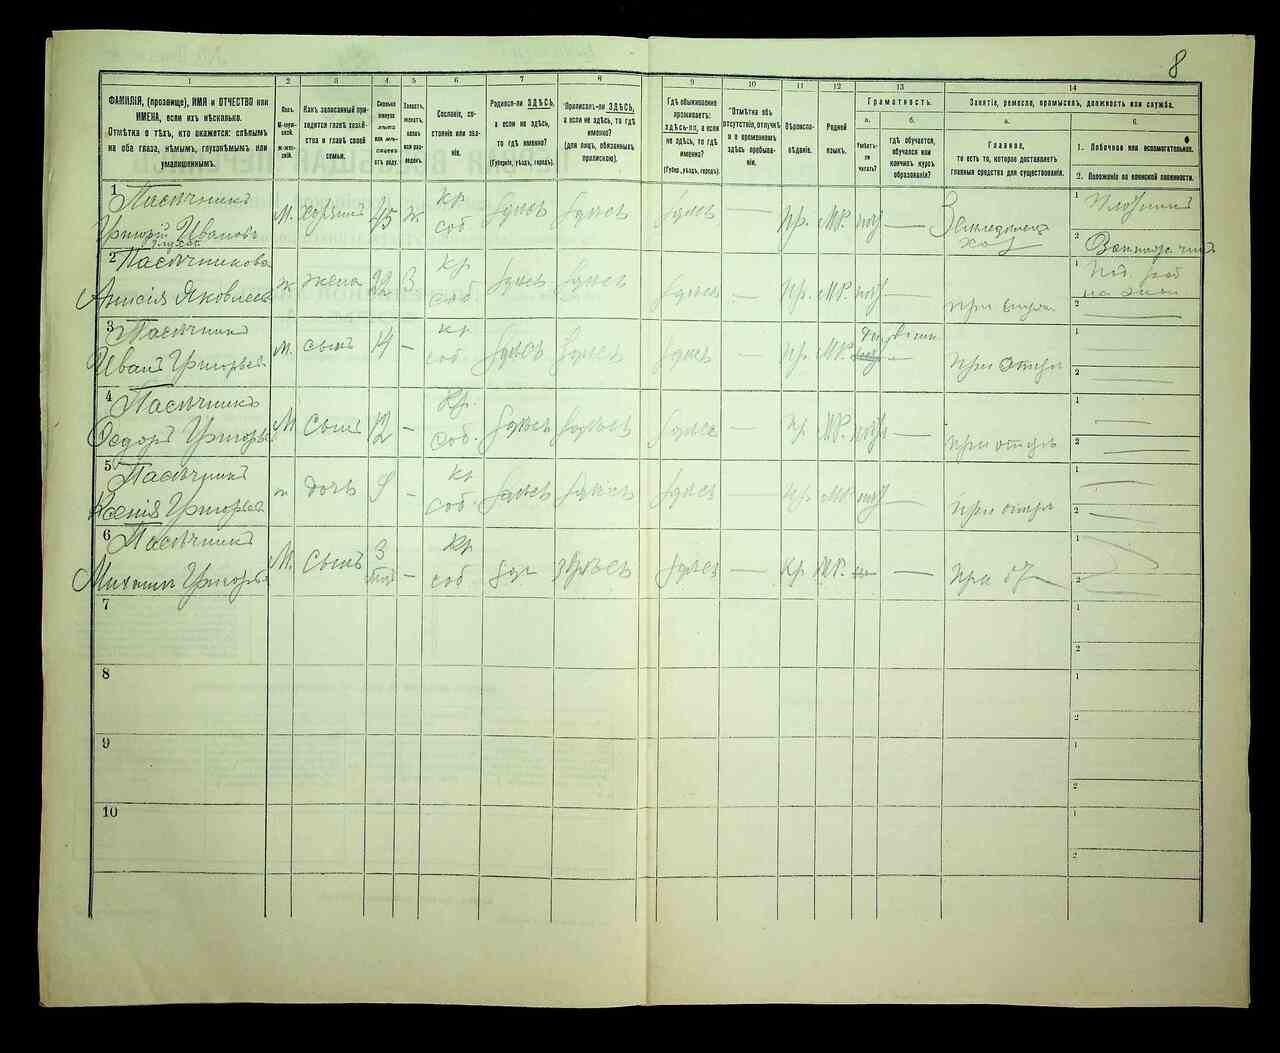 8
1
2
3
4
5
6
7
8
9
10
11
12
13
14
ФАМИЛІЯ, (прозвище), ИМЯ и ОТЧЕСТВО или
ИМЕНА, если ихъ нѣсколько.
Отмѣтка о тѣхъ, кто окажется: слѣпымъ
на оба глаза, нѣмымъ, глухонѣмымъ или
умалишеннымъ.
Полъ.
М-муж-
ской.
Ж-жен-
скій.
Какъ записанный при-
ходится главѣ хозяй-
ства и главѣ своей
семьи.
Сколько
минуло
лѣтъ
или мѣ-
сяцевъ
отъ роду.
Холостъ,
женатъ,
вдовъ
или раз-
веденъ.
Сословіе, со-
стояніе или зва-
ніе.
Родился-ли ЗДѢСЬ,
а если не здѣсь,
то гдѣ именно?
(Губернія, уѣздъ, городъ).
Приписанъ-ли ЗДѢСЬ,
а если не здѣсь, то гдѣ
именно?
(для лицъ, обязанныхъ
припискою).
Гдѣ обыкновенно
проживаетъ:
здѣсь-ли, а если
не здѣсь, то гдѣ
именно?
(Губер., уѣздъ, городъ).
Отмѣтка объ
отсутствіи, отлучкѣ
и о временномъ
здѣсь пребыва-
ніи.
Вѣроиспо-
вѣданіе.
Родной
языкъ.
Грамотность.
а.
Умѣетъ-
ли
читать?
б.
гдѣ обучается,
обучался или
кончилъ курсъ
образованія?
Занятіе, ремесло, промыселъ, должность или служба.
а.
Главное,
то есть то, которое доставляетъ
главныя средства для существованія.
б.
1. Побочное или вспомогательное.
2. Положеніе по воинской повинности.
1 Пасѣчникъ
Григорій Ивановъ
М. хозяинъ 45 ж кр. соб здѣсь здѣсь здѣсь — Пр. МР. нѣтъ — Земледѣлецъ хоз
1 Плотникъ
2
2 Пасѣчникова
Анисія Яковлева
ж жена 3 кр соб здѣсь здѣсь здѣсь — Пр. МР. нѣтъ —
1
2
3 Пасѣчникъ
Иванъ Григорьев
М. сынъ 14 — кр соб. здѣсь здѣсь здѣсь — Пр МР. при отцѣ
1
2
4 Пасѣчникъ
Ѳедоръ Григорьев
М сынъ 12 — Кр. соб. здѣсь здѣсь здѣсь — Пр МР. нѣтъ — при отцѣ
1
2
5 Пасѣчникъ
Ксенія Григорьев
ж дочь 9 — кр соб. здѣсь здѣсь здѣсь — Пр. МР нѣтъ — при отцѣ
1
2
6 Пасѣчникъ
Михаилъ Григорьев
М. сынъ 3 — кр соб здѣсь здѣсь — МР. — при
1
2
7
1
2
8
1
2
9
1
2
10
1
2